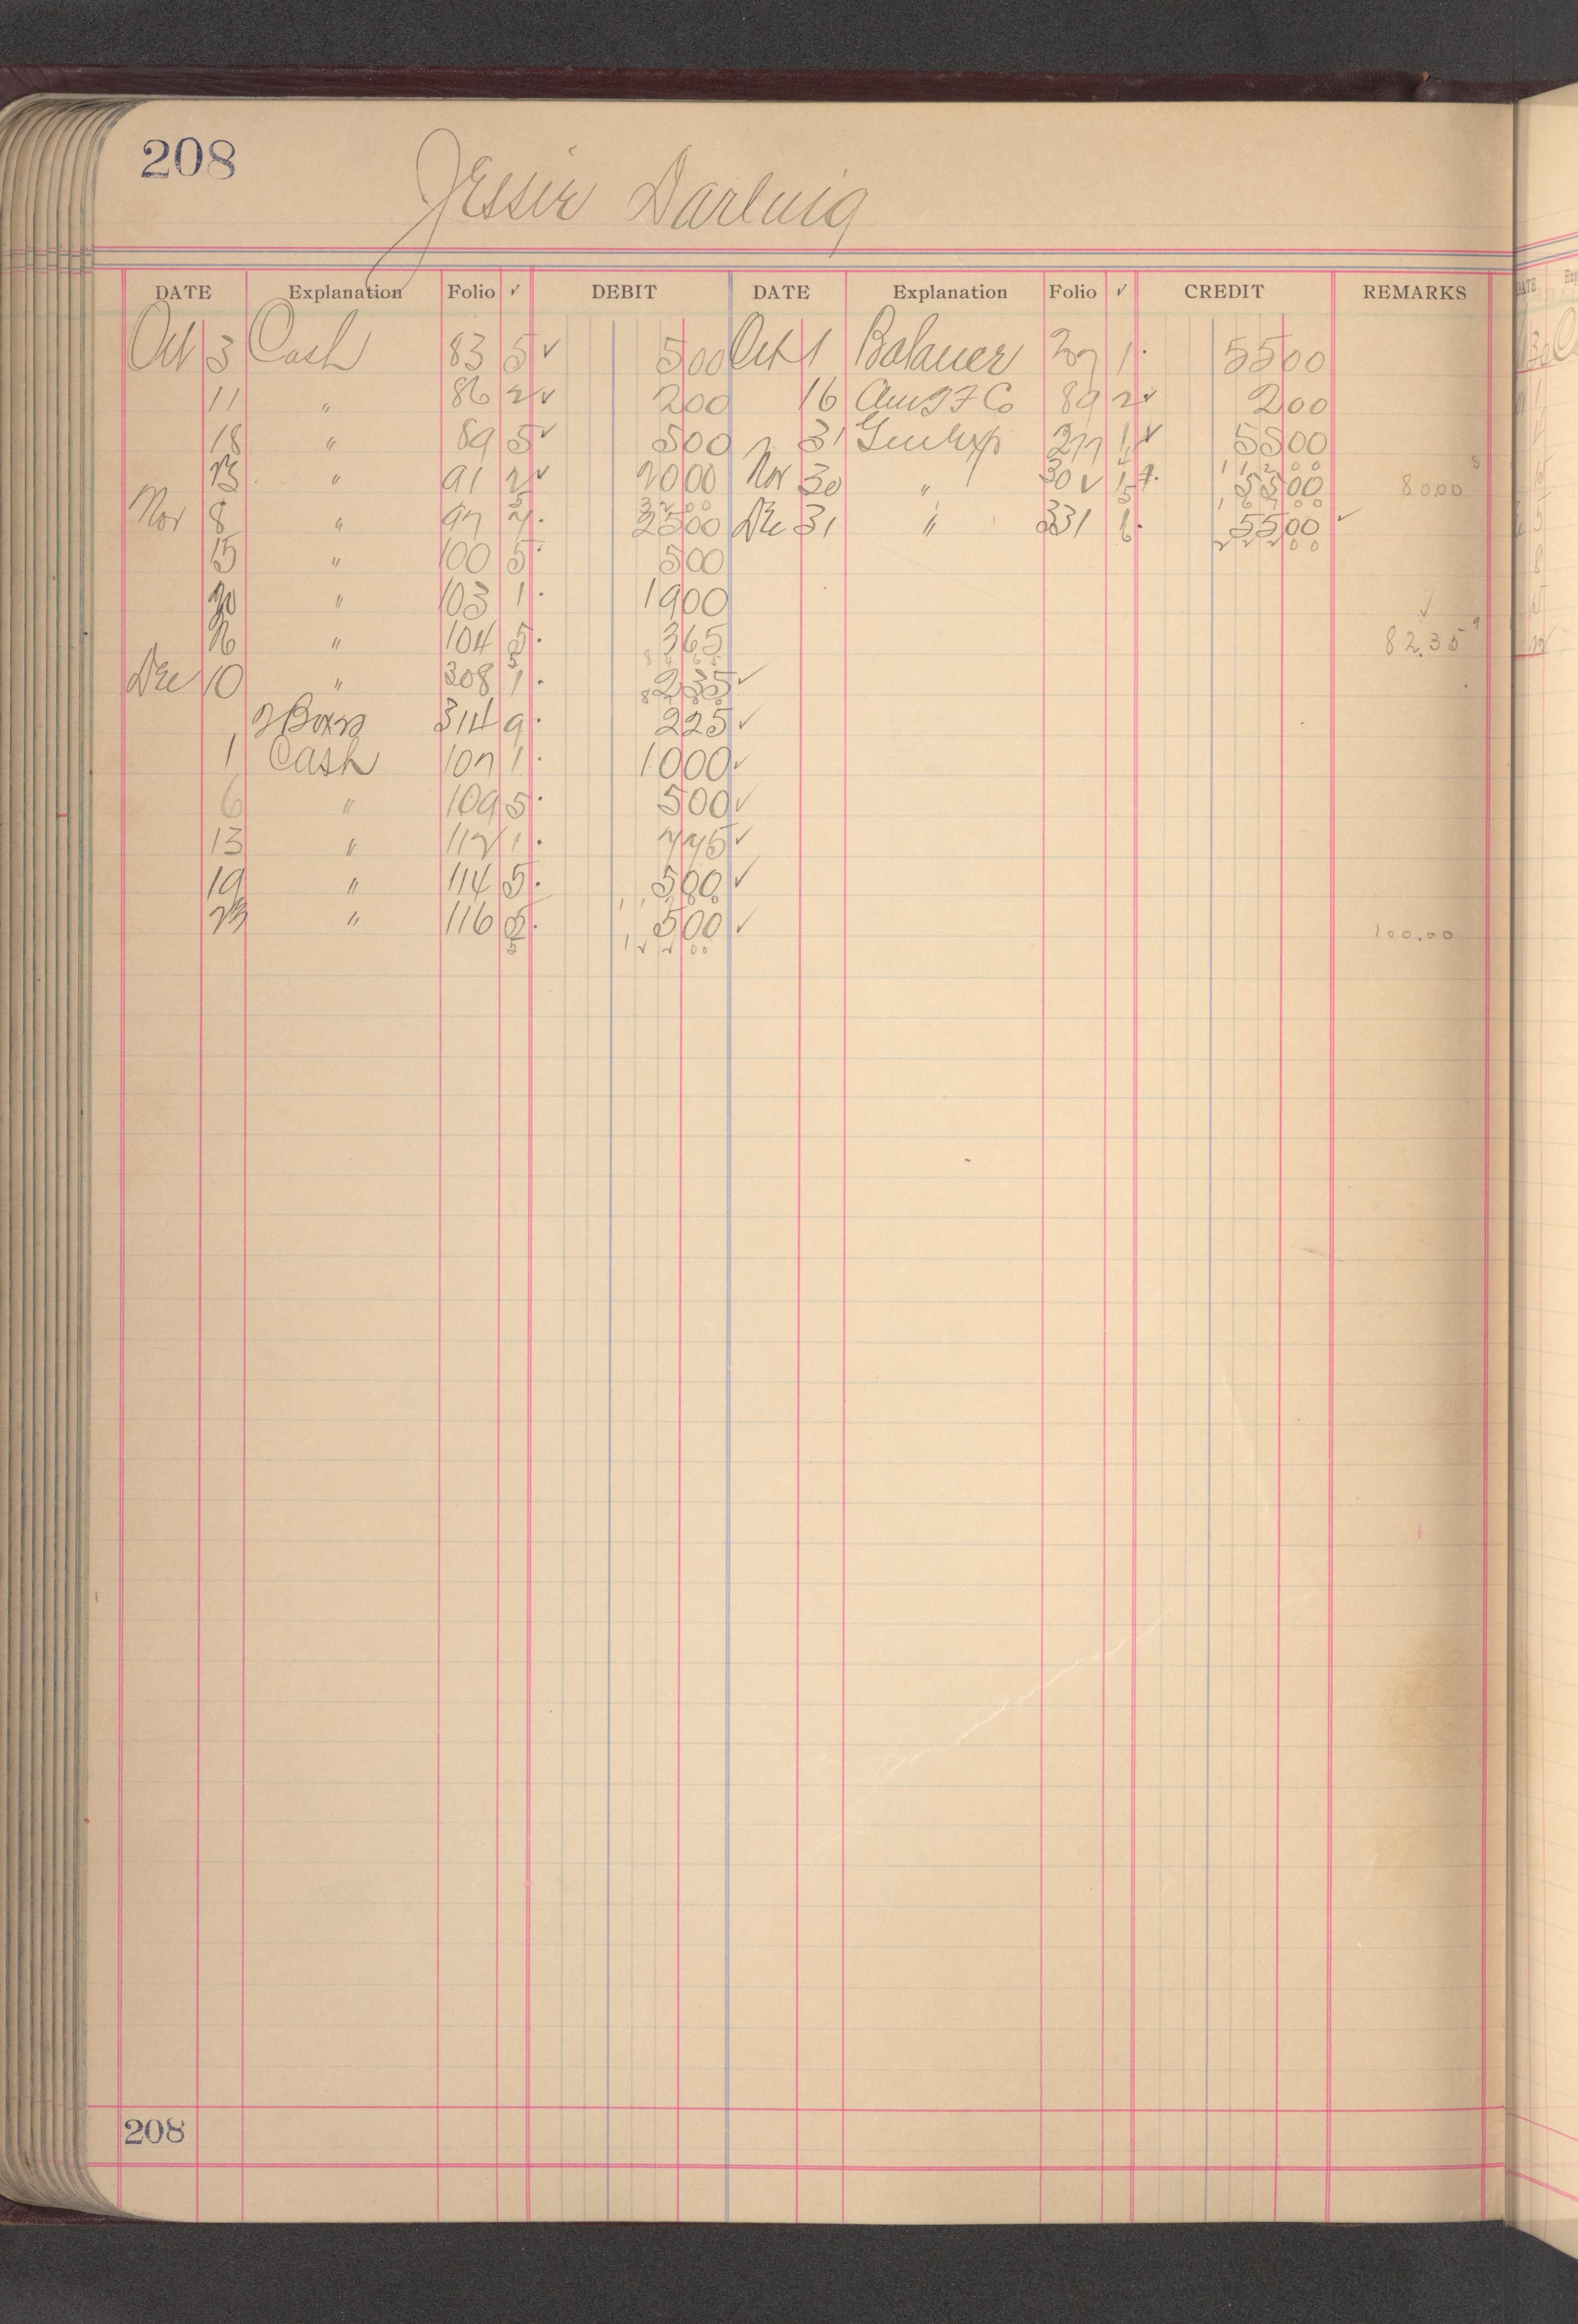 208
Jessie Darling
DATE Explanation Folio ✓ DEBIT DATE Explanation Folio ✓ CREDIT REMARKS
Oct 3 Cash 83 5 ✓ 500 Oct 1 Balance 207 1 5500
11 " 86 2 ✓ 200 16 Am J F Co 89 2 ✓ 200
18 " 89 5 ✓ 500 31 277 1 ✓ 5500
" 91 2 ✓ 2000 Nov 30 " 302 11200 5500 8000
Nov 8 " 97 3200 2500 Dec 31 " 331 5500 ✓
15 " 100 5 500 22200
20 " 103 1 1900
26 " 104 5 365 82.35
Dec 10 " 308 1 235 ✓
314 9 225 ✓
1 Cash 107 1 1000 ✓
6 " 109 5 500 ✓
13 " 112 1 775 ✓
19 " 114 5 500 ✓
" 116 500 ✓ 100.00
208